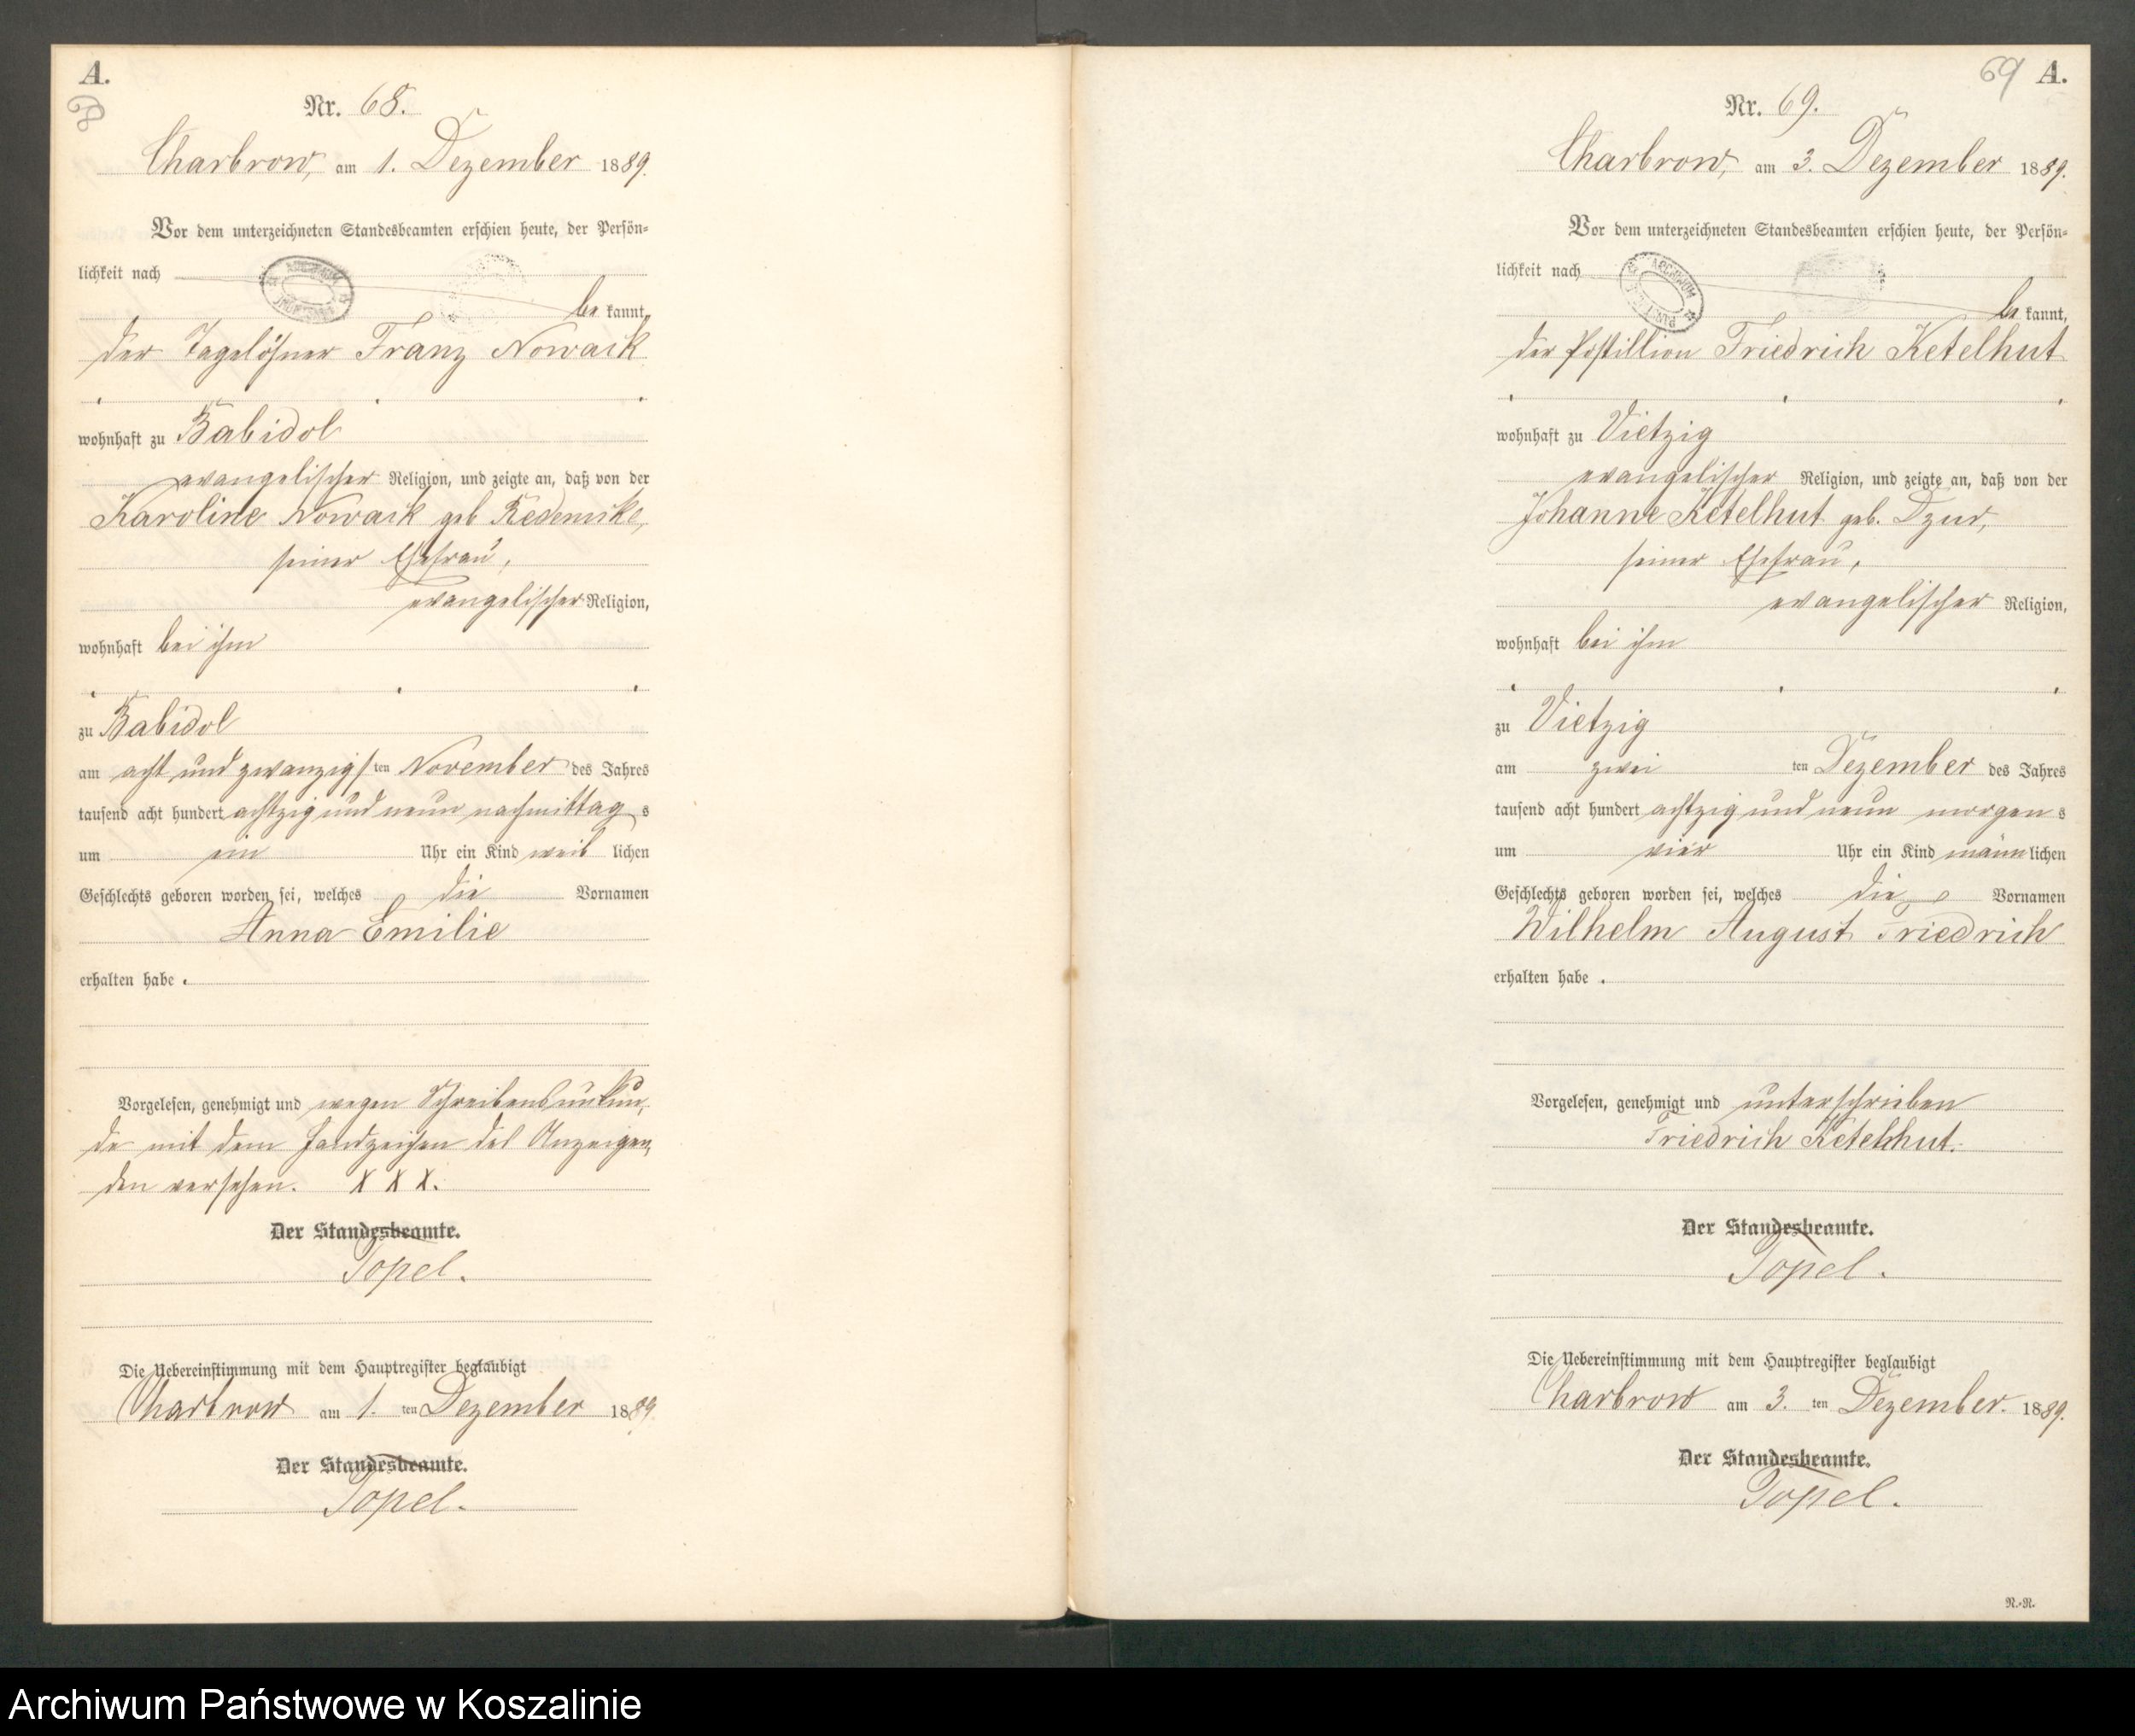 A.
68
Nr. 68.
Charbrow, am 1. Dezember 1889.
Vor dem unterzeichneten Standesbeamten erschien heute, der Persön-
lichkeit nach
be kannt,
der Tagelöhner Franz Nowack
wohnhaft zu Babidol
evangelischer Religion, und zeigte an, daß von der
Karoline Nowack geb
seiner Ehefrau,
evangelischer Religion,
wohnhaft bei ihm
zu Babidol
am acht und zwanzigsten November des Jahres
tausend acht hundert achtzig und neun nachmittags
um ein Uhr ein Kind weiblichen
Geschlechts geboren worden sei, welches die Vornamen
Anna Emilie
erhalten habe.
Vorgelesen, genehmigt und wegen Schreibensunkun-
de mit dem Handzeichen des Anzeigen-
den versehen. X X X.
Der Standesbeamte.
Topel.
Die Uebereinstimmung mit dem Hauptregister beglaubigt
Charbrow am 1. ten Dezember 1889
Der Standesbeamte.
Topel.
69 A.
Nr. 69.
Charbrow, am 3. Dezember 1889.
Vor dem unterzeichneten Standesbeamten erschien heute, der Persön-
lichkeit nach
be kannt,
der Postillion Friedrich Ketelhut
wohnhaft zu Vietzig
evangelischer Religion, und zeigte an, daß von der
Johanne Ketelhut geb. Dzur,
seiner Ehefrau,
evangelischer Religion,
wohnhaft bei ihm
zu Vietzig
am zwei ten Dezember des Jahres
tausend acht hundert achtzig und neun morgens
um vier Uhr ein Kind männlichen
Geschlechts geboren worden sei, welches die Vornamen
Wilhelm August Friedrich
erhalten habe.
Vorgelesen, genehmigt und unterschrieben
Friedrich Ketelhut.
Der Standesbeamte.
Topel.
Die Uebereinstimmung mit dem Hauptregister beglaubigt
Charbrow am 3. ten Dezember. 1889.
Der Standesbeamte.
Topel.
R.-R.
Archiwum Państwowe w Koszalinie